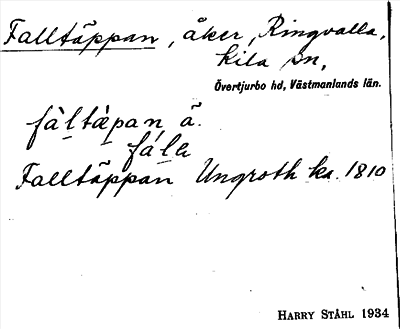 Falltäppan, åker, Ringvalla,
Kila sn,
Övertjurbo hd, Västmanlands län.
fàltæ̀pan ā.
fála
Falltäppan Ungroth ka. 1810
HARRY STÅHL 1934